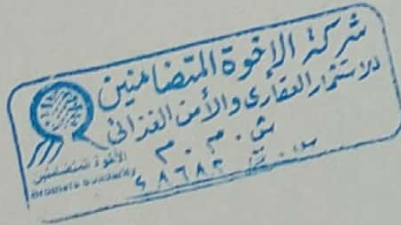 شركة الإخوة المتضامنين
للاستثمار العقارى والأمن الغذائى
ش . م . م
س . ت ٤٨٦٨٣
الأخوة المتضامنين